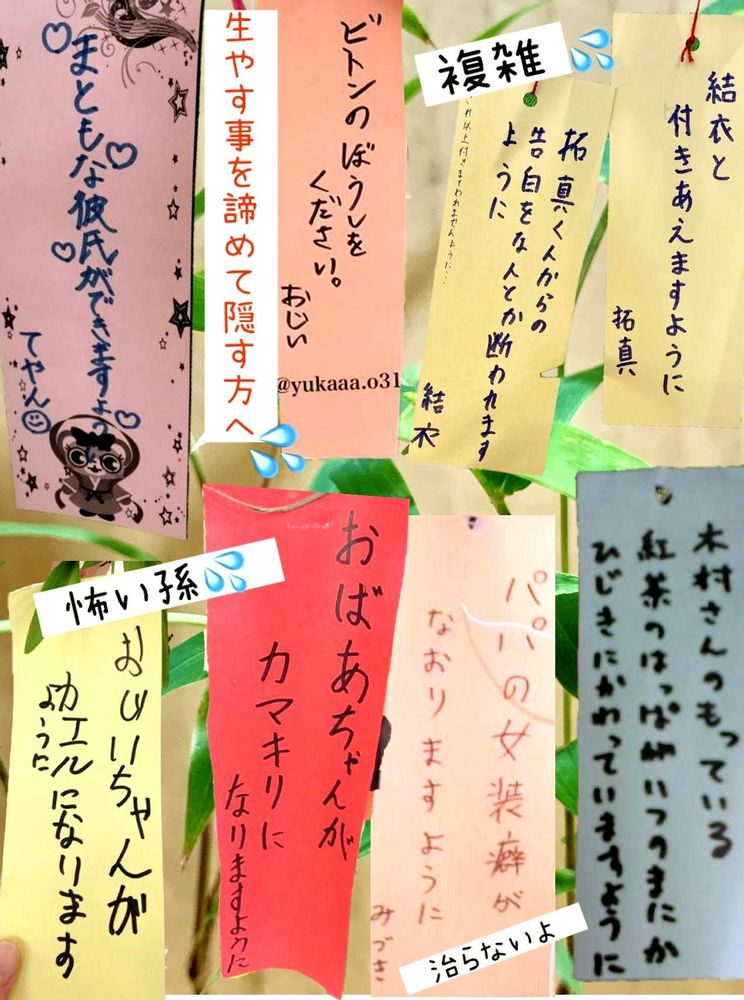 まともな彼氏ができますように
てやん
生やす事を諦めて隠す方へ
ビトンのぼうしを
ください。
おじい
@yukaaa.o31
複雑
結衣と
付きあえますように
拓真
拓真くんからの
告白をなんとか断われます
ように
これ以上付きまとわれませんように…
結衣
怖い孫
おじいちゃんが
カエルになります
ように
おばあちゃんが
カマキリに
なりますように
パパの女装癖が
なおりますように
みづき
治らないよ
木村さんのもっている
紅茶のはっぱがいつのまにか
ひじきにかわっていますように